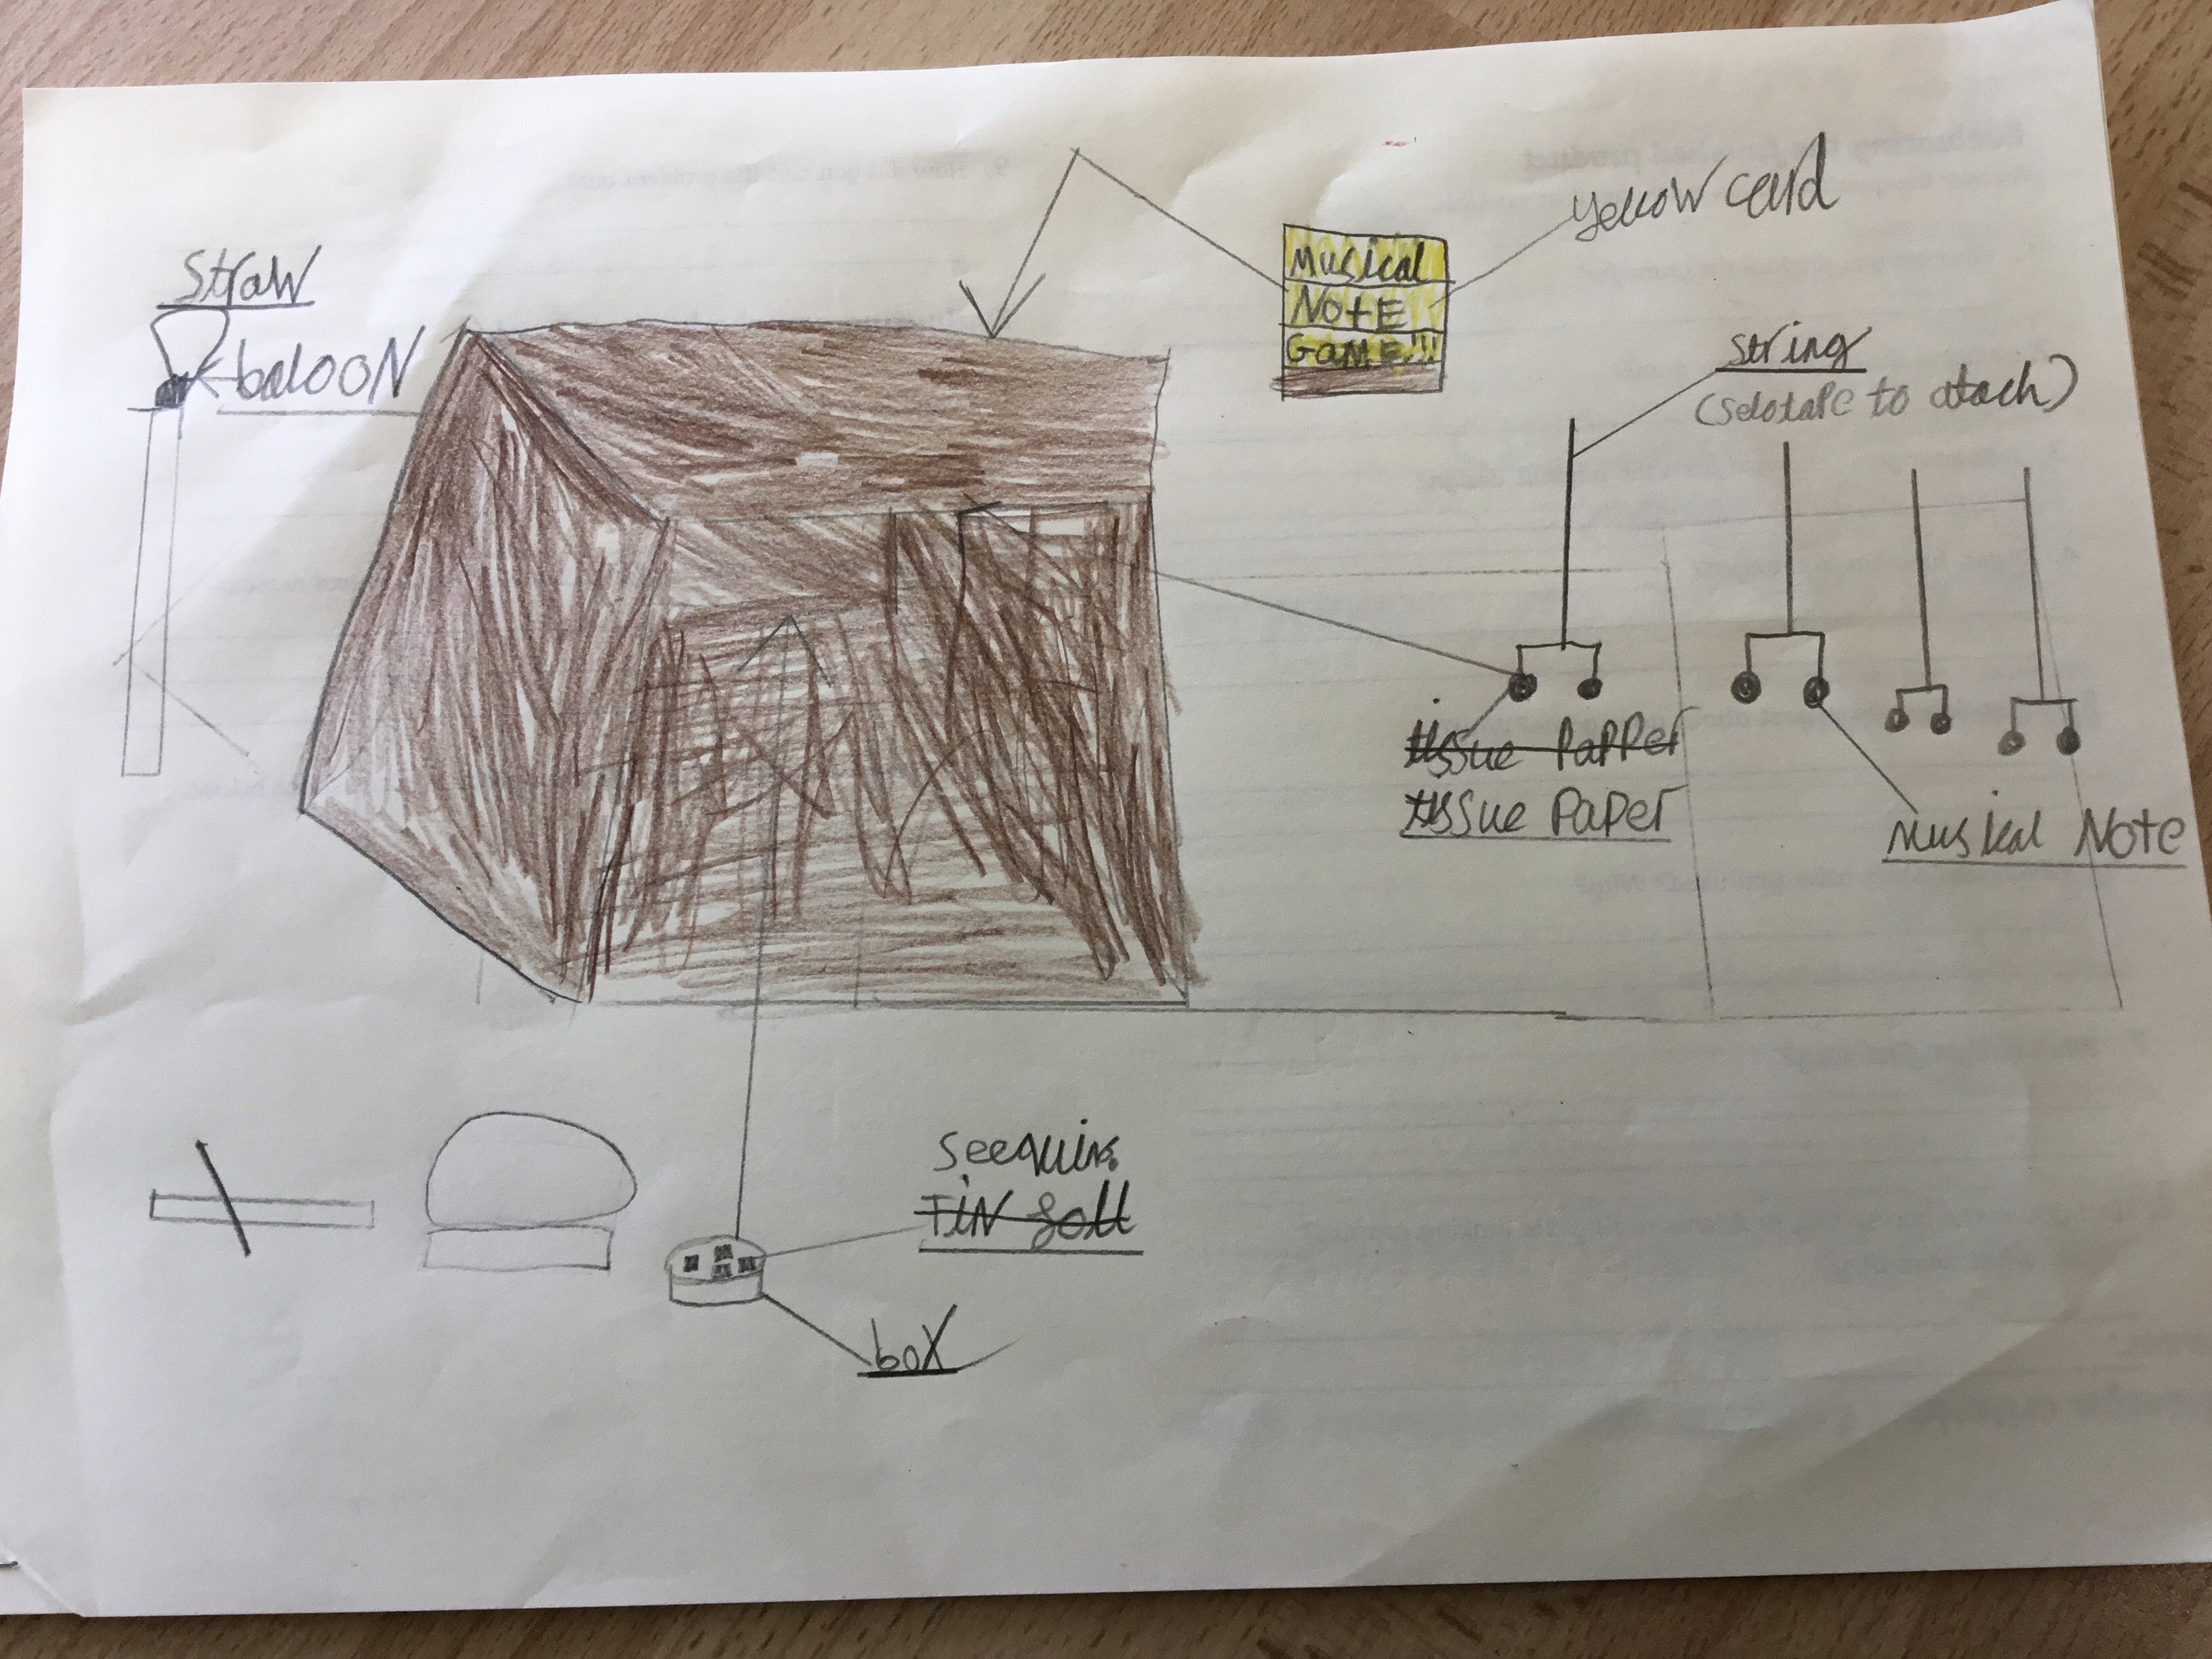 Straw
baloon
Musical
Note
Game!!!
yellow card
string
(selotape to attach)
tissue papper
tissue paper
Musical Note
Seequins
Tin foll
box